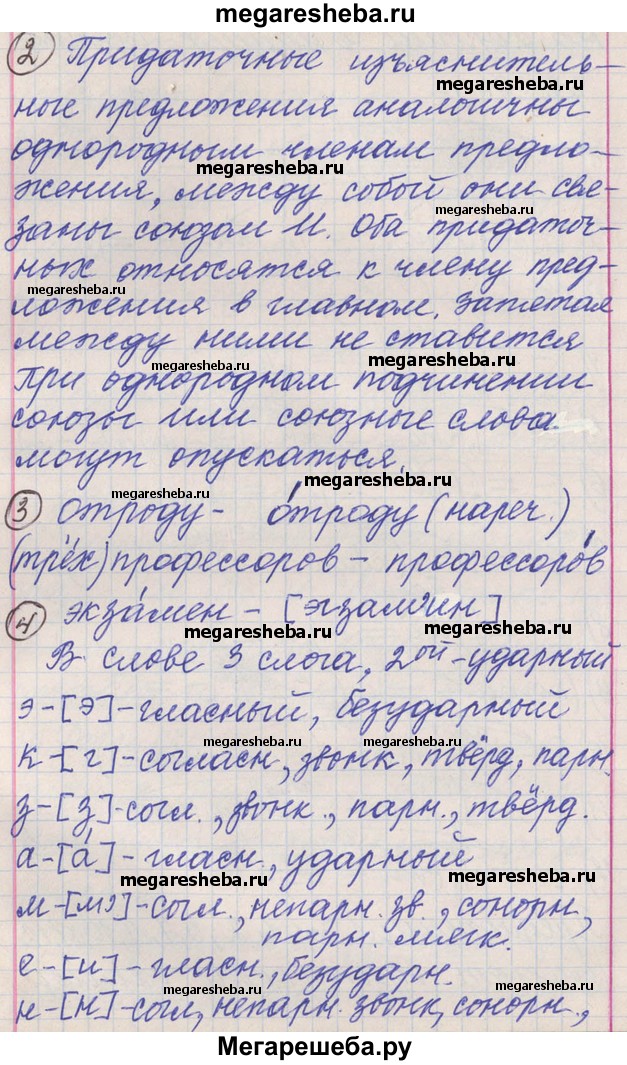 megaresheba.ru
2 Придаточные изъяснитель-
megaresheba.ru
ные предложения аналогичны
однородным членам предло-
megaresheba.ru
жения, между собой они свя-
megaresheba.ru
заны союзом И. Оба придаточ-
ных относятся к члену пред-
ложения в главном. Запятая
megaresheba.ru
между ними не ставится
megaresheba.ru
megaresheba.ru
При однородном подчинении
союзы или союзные слова
могут опускаться.
megaresheba.ru
megaresheba.ru
3 отроду - о́троду (нареч.)
(трёх) профессоров - профессоро́в
4 экза́мен - [эгзам'ин]
megaresheba.ru
megaresheba.ru
В слове 3 слога, 2ой - ударный
э - [э] - гласный, безударный
megaresheba.ru
megaresheba.ru
к - [г] - согласн., звонк., твёрд, парн.
з - [з] - согл., звонк., парн., твёрд.
а - [а́] - гласн., ударный
megaresheba.ru
megaresheba.ru
м - [м'] - согл., непарн. зв., сонорн.,
парн. мягк.
е - [и] - гласн., безударн.
megaresheba.ru
megaresheba.ru
н - [н] - согл, непарн. звонк, сонорн.,
Мегарешеба.ру